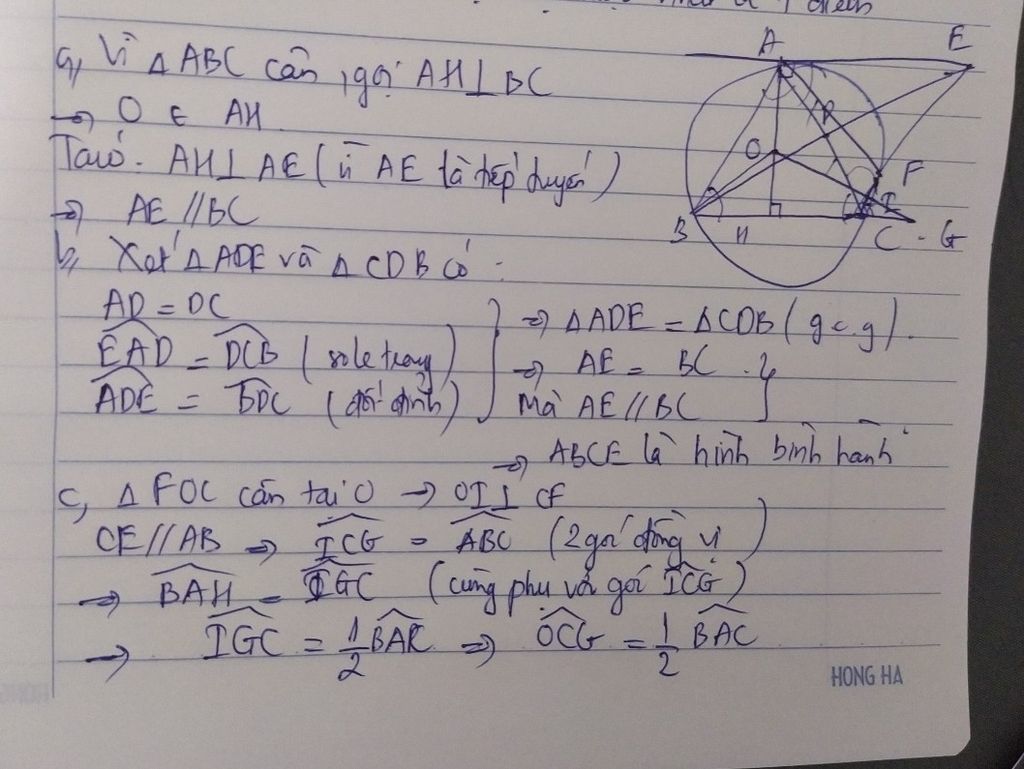 a, Vì △ABC cân, gọi AH⊥BC
→ O ∈ AH
Ta có: AH⊥AE (vì AE là tiếp tuyến)
→ AE // BC
b, Xét △ADE và △CDB có:
AD = DC
EAD = DCB (so le trong)
ADE = BDC (đối đỉnh)
⇒ △ADE = △CDB (g.c.g).
⇒ AE = BC
Mà AE // BC
⇒ ABCE là hình bình hành
c, △FOC cân tại O → OI⊥CF
CE // AB ⇒ ICG = ABC (2 góc đồng vị)
→ BAH = IGC (cùng phụ với góc ICG)
→ IGC = 1/2 BAC ⇒ OCG = 1/2 BAC
A E
O F
I
B H C G
HONG HA